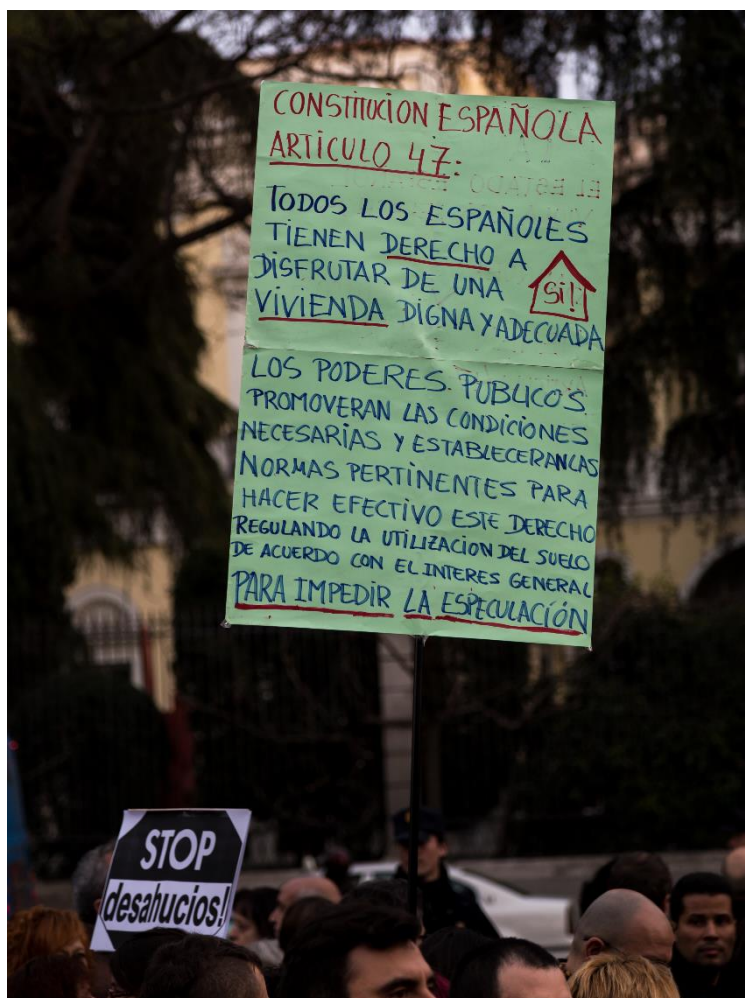 CONSTITUCION ESPAÑOLA
ARTICULO 47:
TODOS LOS ESPAÑOLES
TIENEN DERECHO A
DISFRUTAR DE UNA
Si!
VIVIENDA DIGNA Y ADECUADA
LOS PODERES PUBLICOS
PROMOVERAN LAS CONDICIONES
NECESARIAS Y ESTABLECERAN LAS
NORMAS PERTINENTES PARA
HACER EFECTIVO ESTE DERECHO
REGULANDO LA UTILIZACION DEL SUELO
DE ACUERDO CON EL INTERES GENERAL
PARA IMPEDIR LA ESPECULACIÓN
STOP
desahucios!